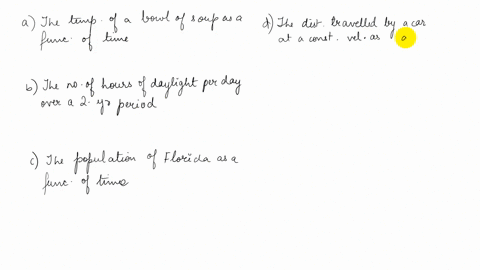 a) The temp. of a bowl of soup as a
func. of time
b) The no. of hours of daylight per day
over a 2. yr period
c) The population of Florida as a
func. of time
d) The dist. travelled by a car
at a const. vel. as a